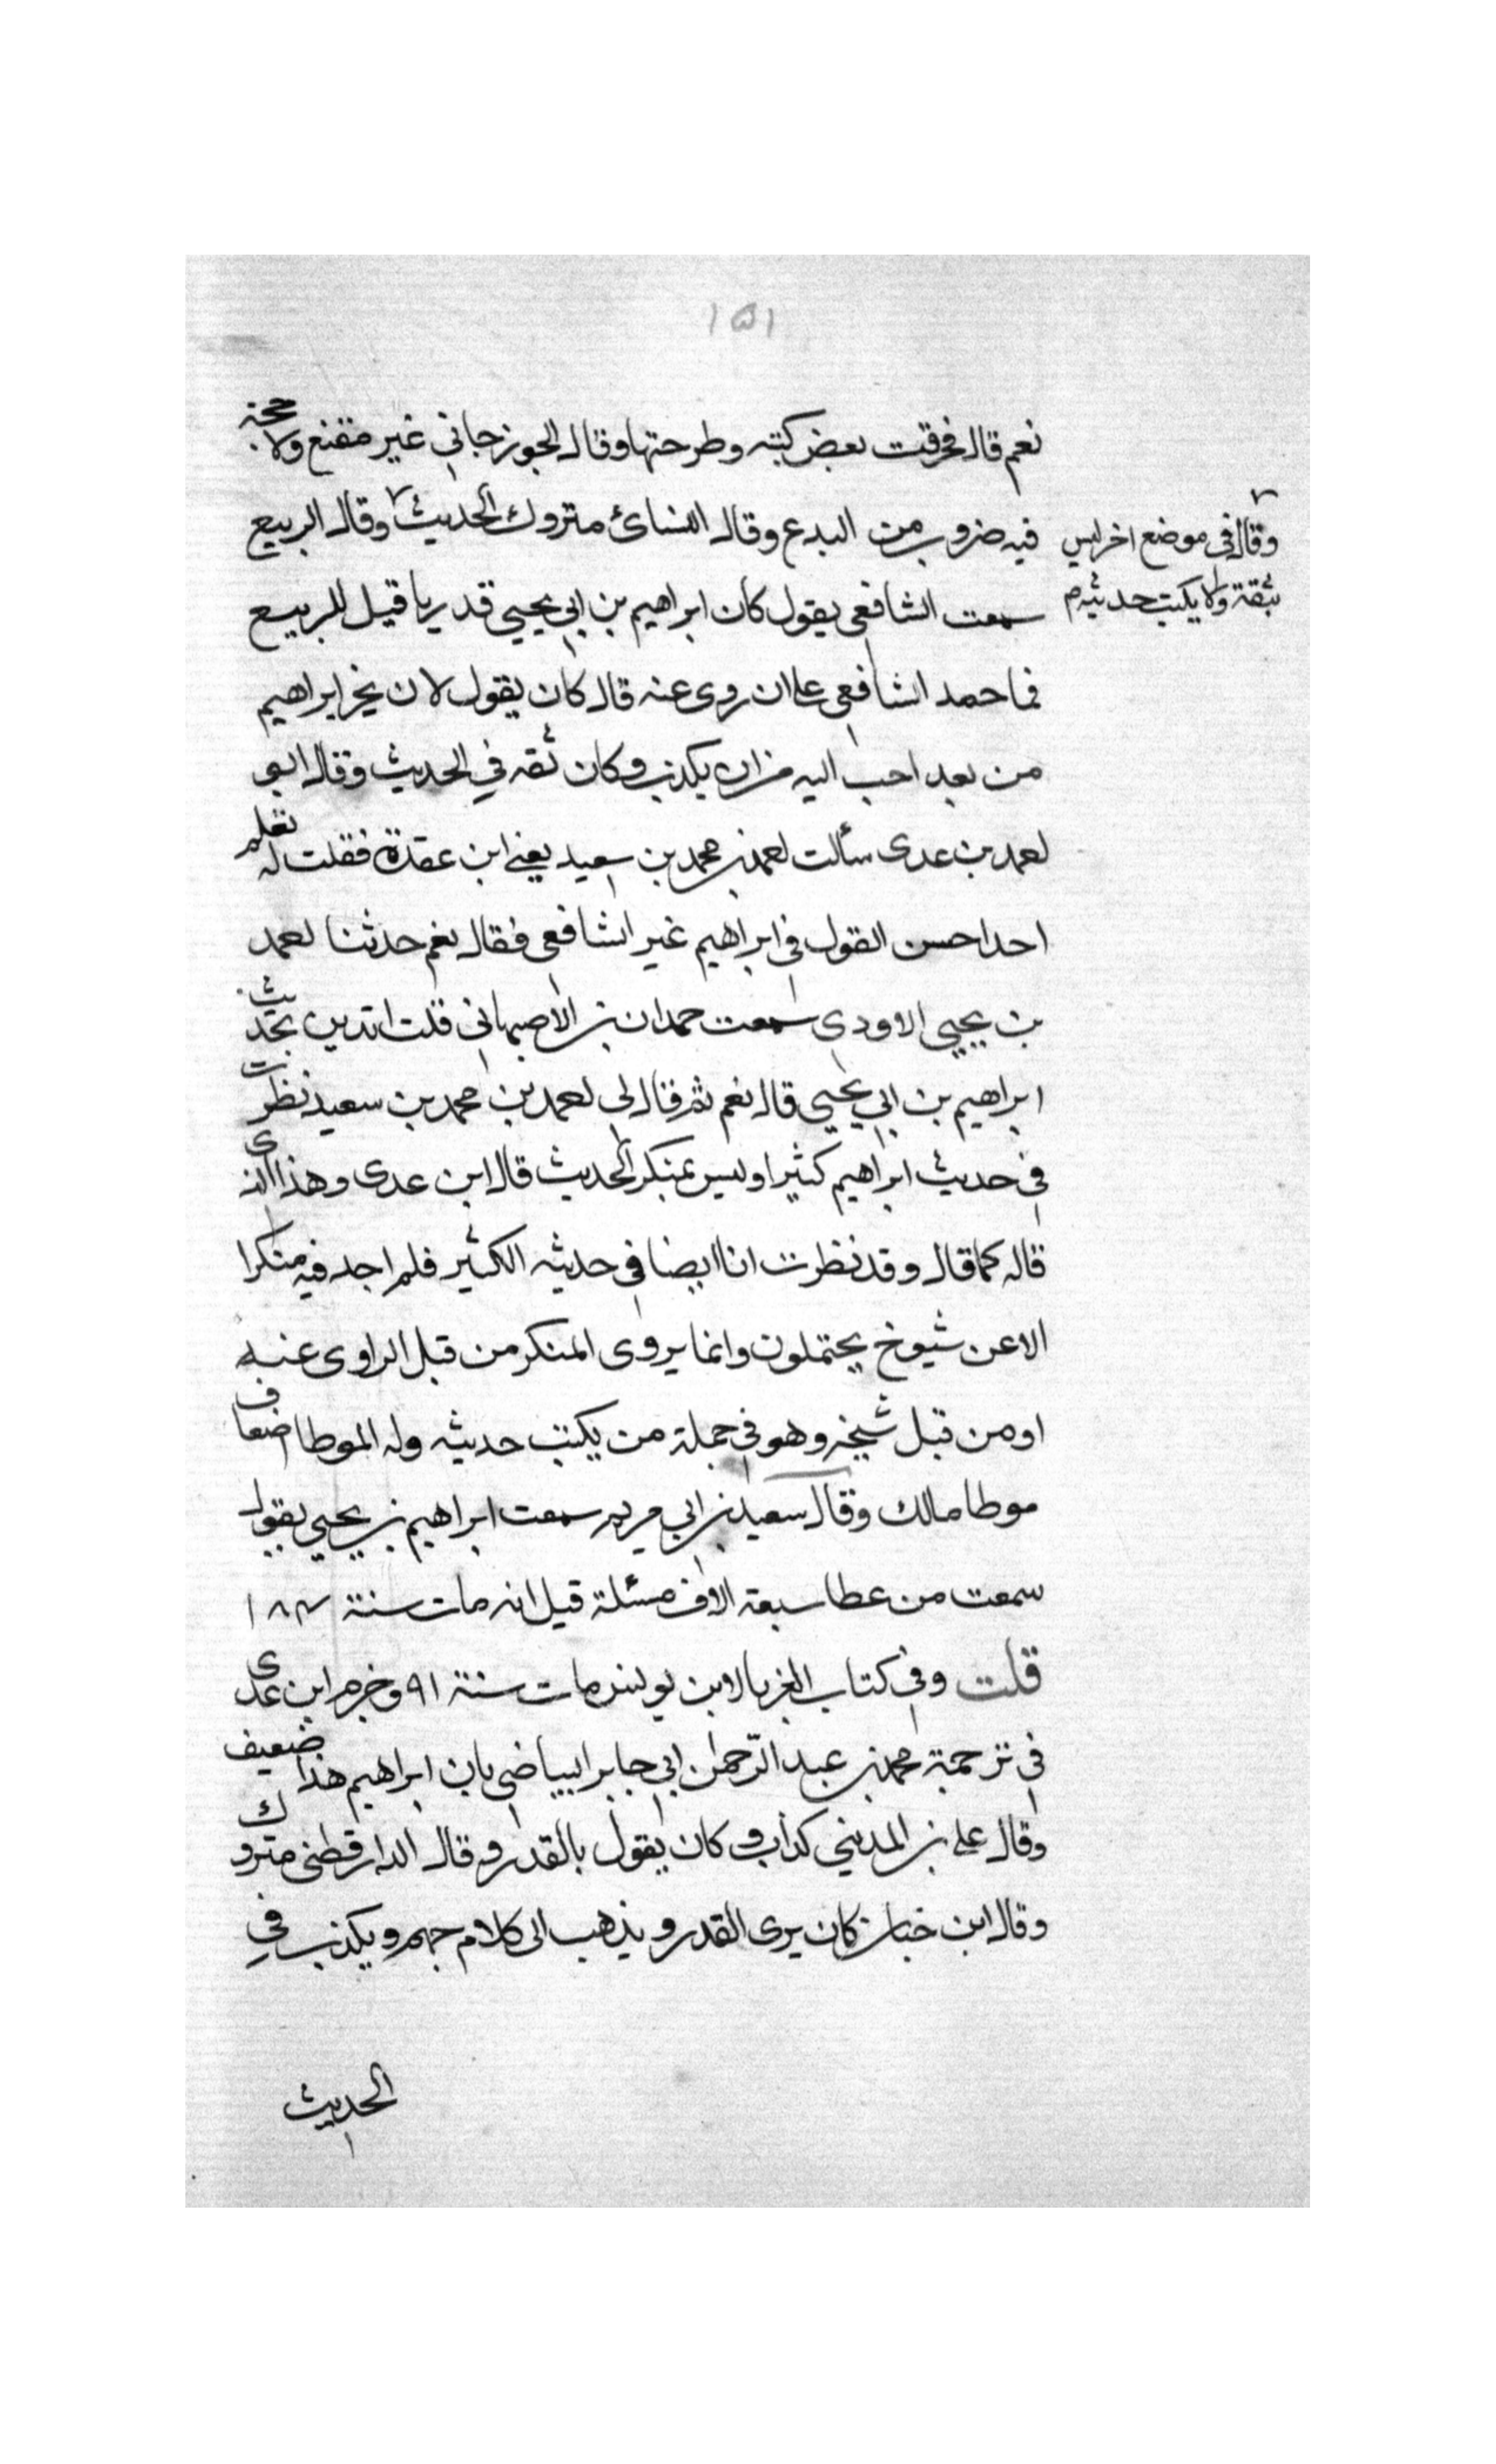 ١٥١
نعم قال فخرقت بعض كتبه وطرحتها وقال الجوزجاني غير مقنع ولا حجة
فيه ضروب من البدع وقال النسائ متروك الحديث وقال الربيع
وقال في موضع اخر ليس
بثقة ولا يكتب حديثه م
سمعت الشافعي يقول كان ابراهيم بن ابي يحيي قدريا قيل للربيع
فما حمد الشافعي علي ان روى عنه قال كان يقول لان يخر ابراهيم
من بعد احب اليه من ان يكذب وكان ثقه في الحديث وقال ابو
احمد بن عدى سألت احمد بن محمد بن سعيد يعني ابن عقدة فقلت له تعلم
احدا حسن القول في ابراهيم غير الشافعي فقال نعم حدثنا احمد
بن يحيي الاودي سمعت حمدان بن الاصبهاني قلت اتدين بحديث
ابراهيم بن ابي يحيي قال نعم ثم قال لي احمد بن محمد بن سعيد نظرت
في حديث ابراهيم كثيرا وليس بمنكر الحديث قال ابن عدى وهذا الذى
قاله كما قال وقد نظرت انا ايضا في حديثه الكثير فلم اجد فيه منكرا
الا عن شيوخ يحتملون وانما يروى المنكر من قبل الراوى عنه
او من قبل شيخه وهو في جملة من يكتب حديثه وله الموطا اضعاف
موطا مالك وقال سعيد بن ابي مريم سمعت ابراهيم بن يحيي يقول
سمعت من عطا سبعة الاف مسئلة قيل انه مات سنة ١٨٤
قلت وفي كتاب الغربا لابن يونس مات سنة ٩١ وجزم ابن عدى
في ترجمة محمد بن عبد الرحمن ابي جابر البياضي بان ابراهيم هذا ضعيف
وقال علي بن المديني كذاب وكان يقول بالقدر وقال الدارقطني متروك
وقال ابن حبان كان يرى القدر ويذهب الى كلام جهم ويكذب في
الحديث